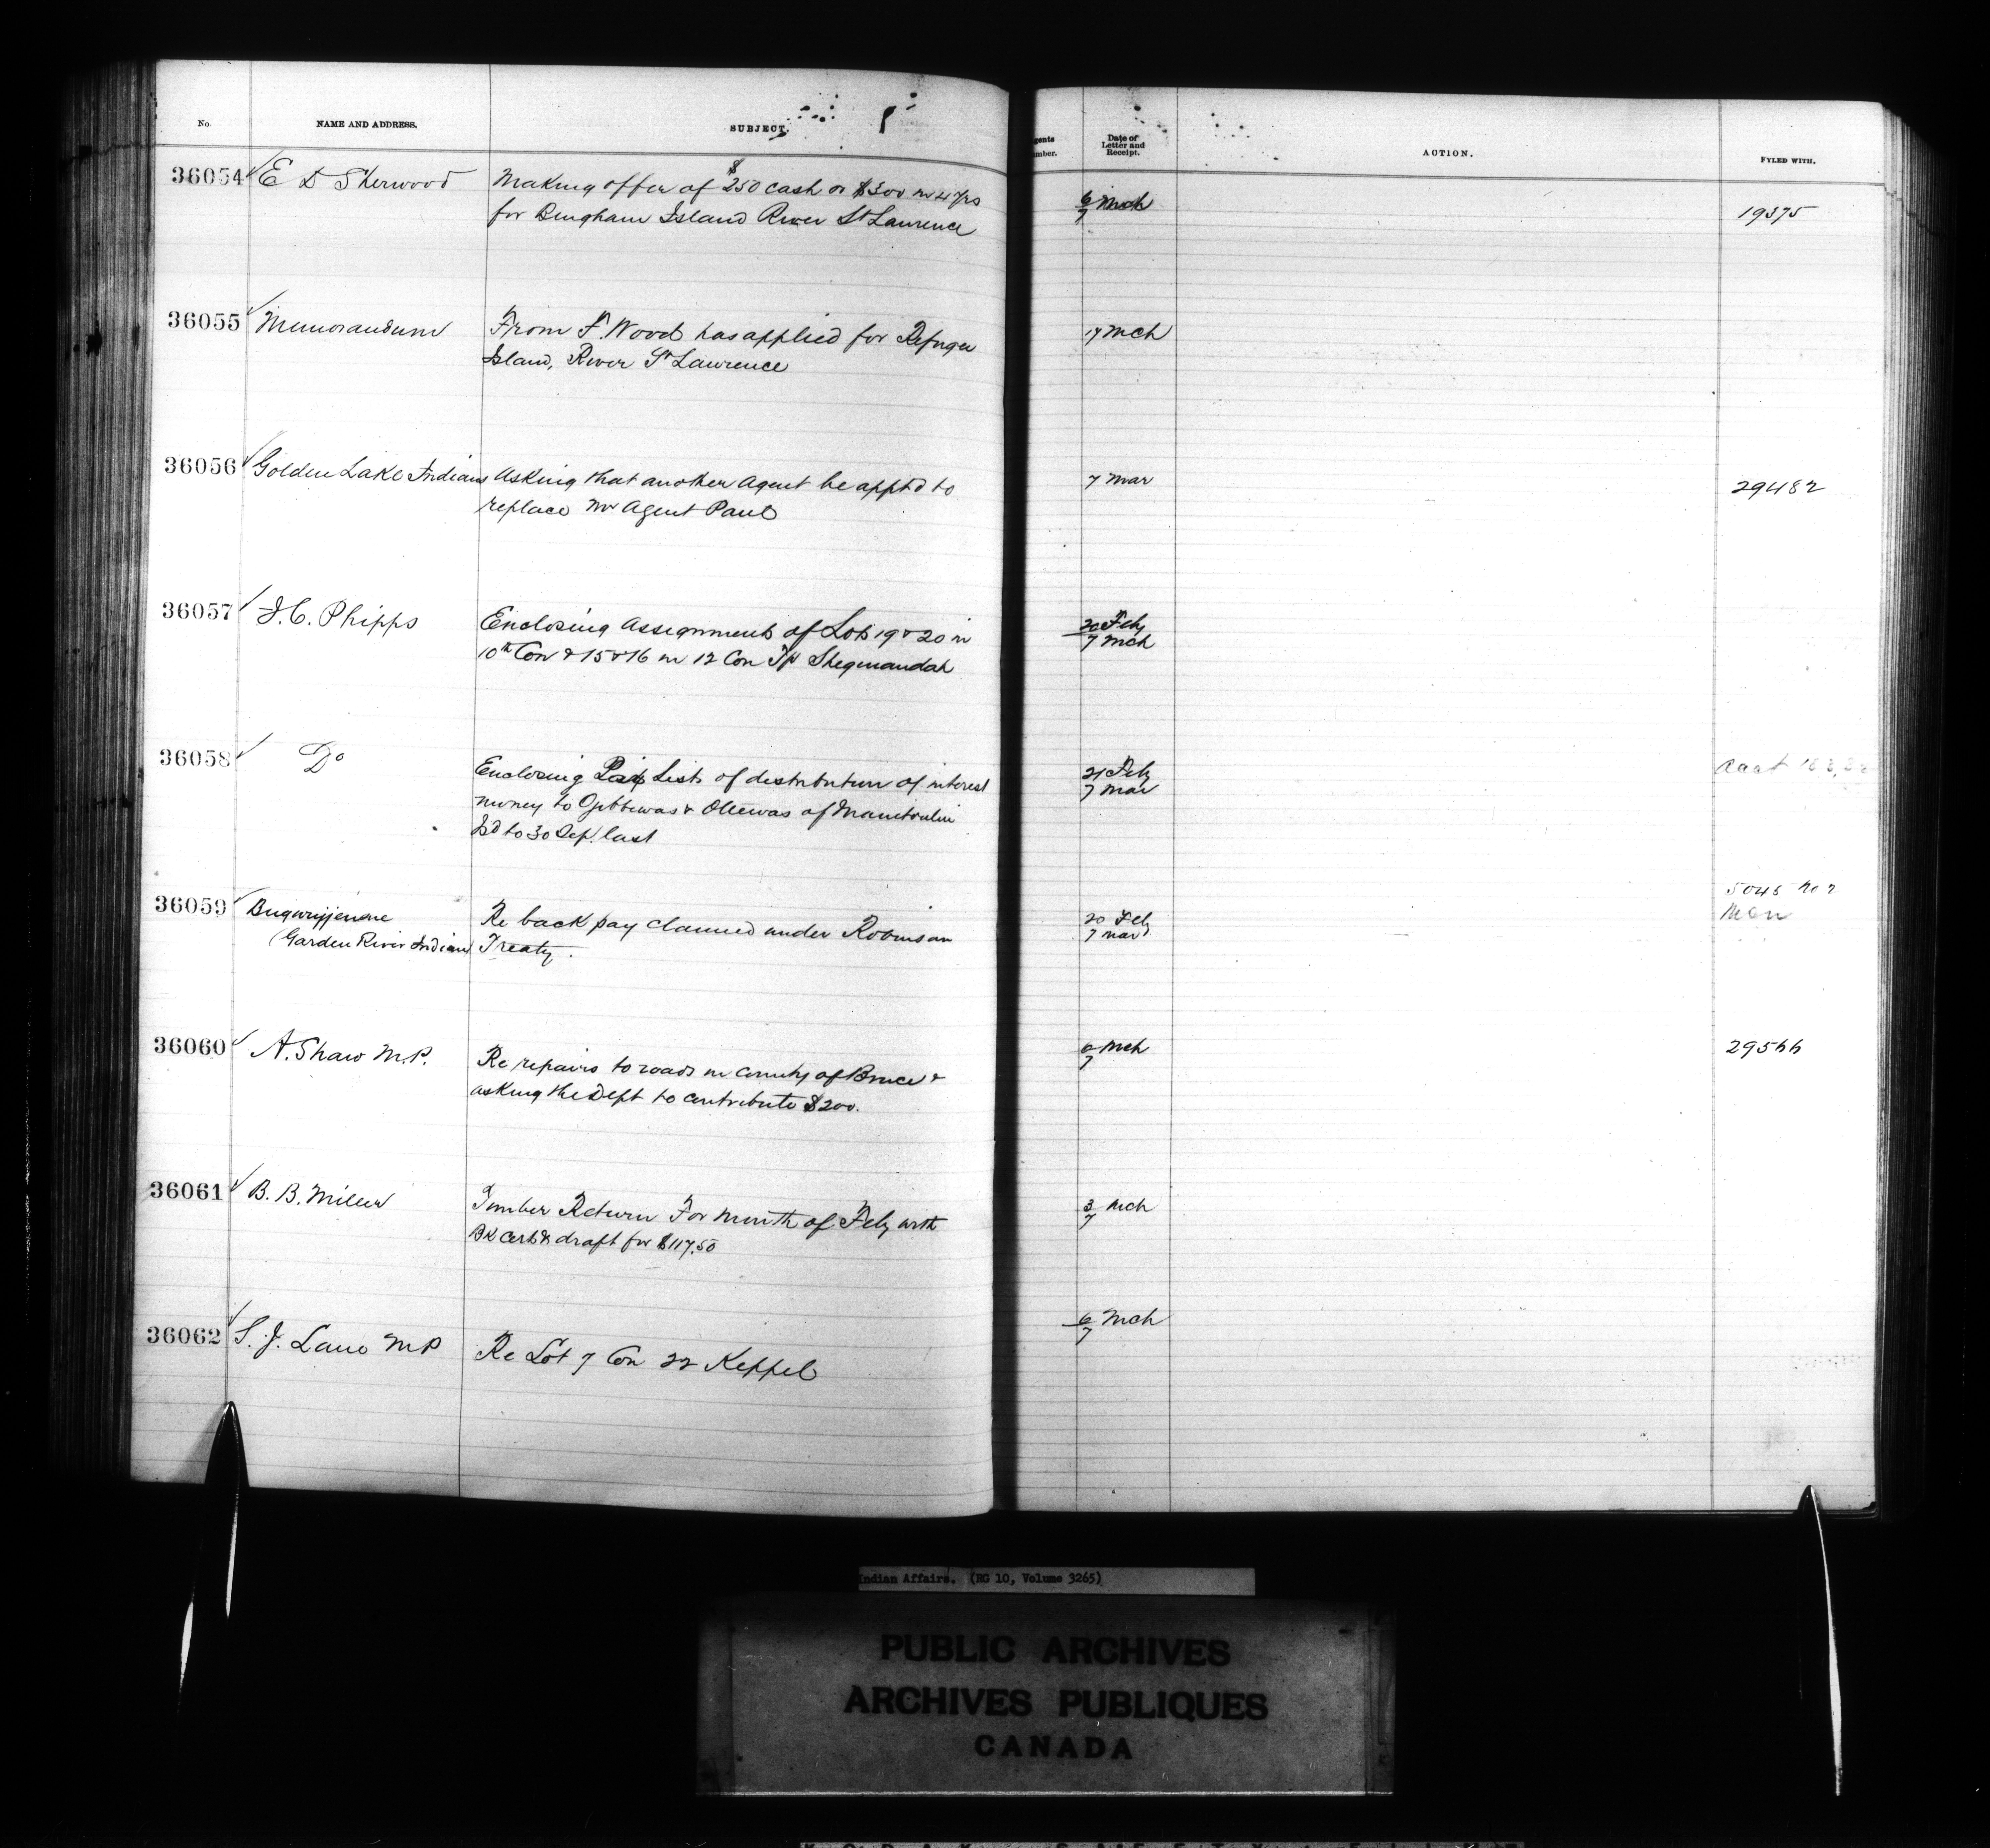 No.
NAME AND ADDRESS.
SUBJECT.
gents
mber.
Date of
Letter and
Receipt.
ACTION.
FYLED WITH.
36054 E D Sherwood
Making offer of $250 cash or $300 in 4 yrs
for Bingham Island River St Lawrence
6 Mch
7
19375
36055 Memorandum
From F. Wood has applied for Refugee
Island, River St Lawrence
17 Mch
36056 Golden Lake Indians
Asking that another Agent be apptd to
replace Mr Agent Paul
7 Mar
29482
36057 J. C. Phipps
Enclosing Assignments of Lots 19 & 20 in
10th Con & 15 & 16 in 12 Con Tp Sheguiandah
20 Feby
7 Mch
36058 Do
Enclosing Pay Lists of distribution of interest
money to Ojibbewas & Ottewas of Manitoulin
Isd to 30 Sep. last
21 Feby
7 Mar
36059
(Garden River Indian)
Re back pay claimed under Robinson
Treaty.
20 Feby
7 Mar
36060 A. Shaw M.P.
Re repairs to roads in County of Bruce &
asking the Dept to contribute $200.
6 Mch
7
29566
36061 B. B. Miller
Timber Return For Month of Feby with
Bk Cert & draft for $117.50
3 Mch
7
36062 S. J. Lane MP
Re Lot 7 Con 22 Keppel
6 Mch
7
Indian Affairs. (RG 10, Volume 3265)
PUBLIC ARCHIVES
ARCHIVES PUBLIQUES
CANADA